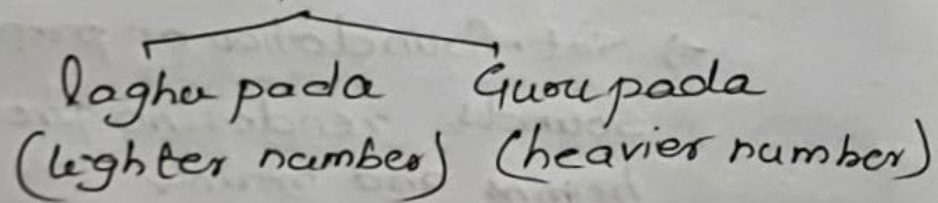 laghu pada Guru pada
(lighter number) (heavier number)